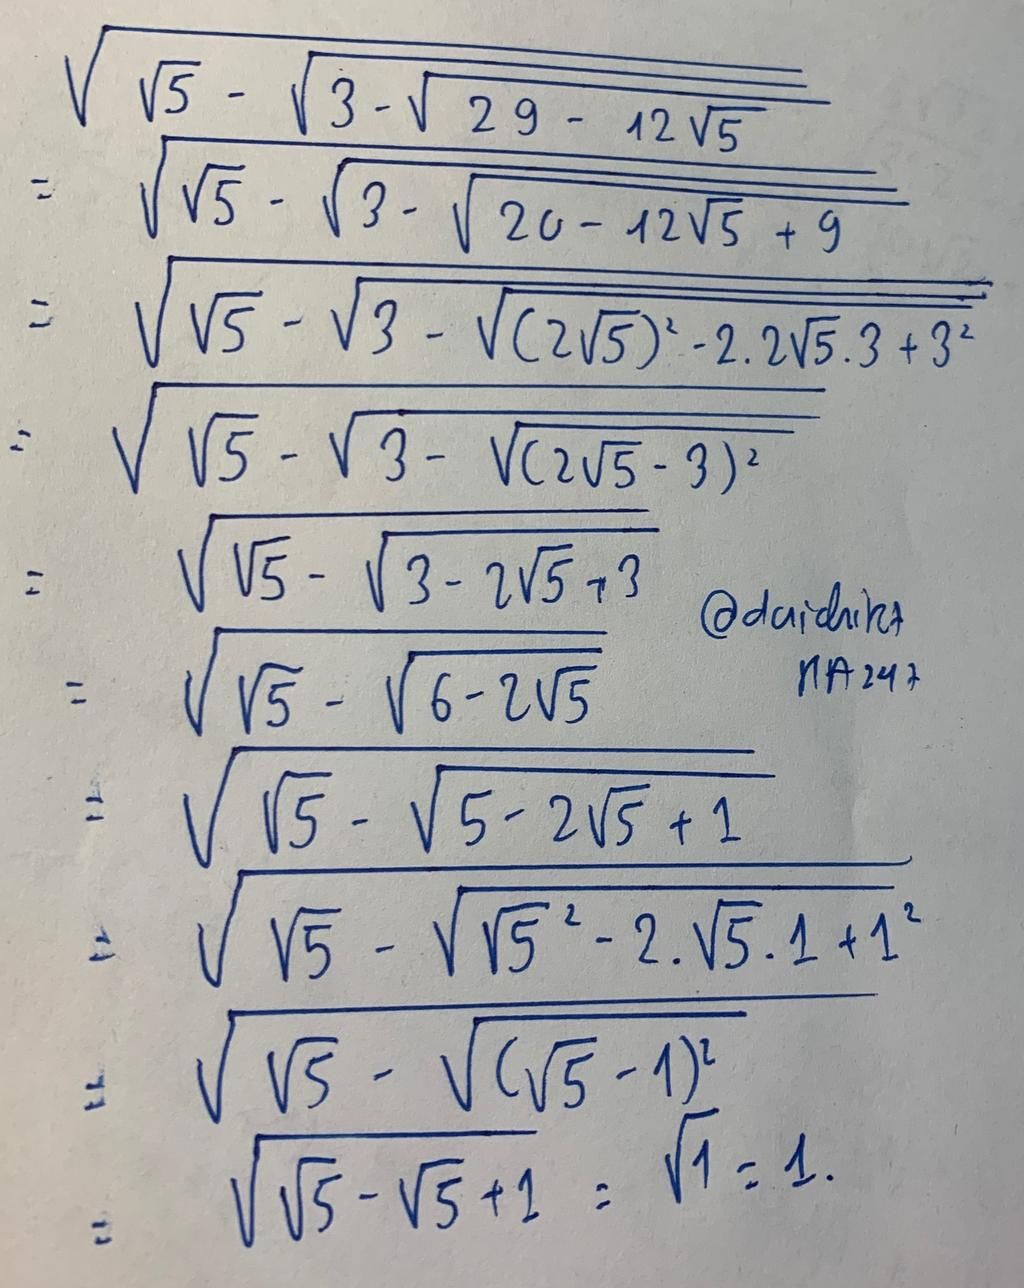 √(√5 - √(3 - √(29 - 12√5)))
= √(√5 - √(3 - √(20 - 12√5 + 9)))
= √(√5 - √(3 - √((2√5)² - 2.2√5.3 + 3²)))
= √(√5 - √(3 - √((2√5 - 3)²)))
= √(√5 - √(3 - 2√5 + 3))
= √(√5 - √(6 - 2√5))
= √(√5 - √(5 - 2√5 + 1))
= √(√5 - √(√5² - 2.√5.1 + 1²))
= √(√5 - √((√5 - 1)²))
= √(√5 - √5 + 1) = √1 = 1.